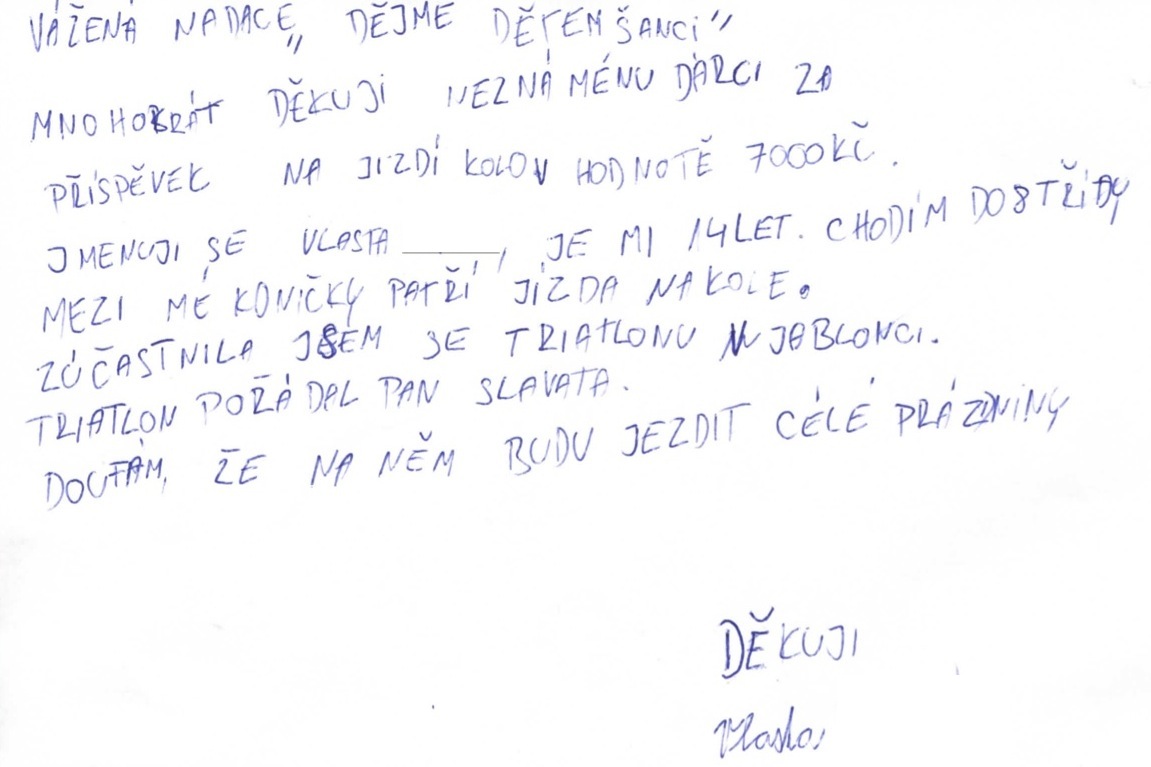 VÁŽENÁ NADACE „DĚJME DĚTEM ŠANCI"
MNOHOKRÁT DĚKUJI NEZNÁMÉNU DÁRCI ZA
PŘÍSPĚVEK NA JIZDÍ KOLO V HODNOTĚ 7000KČ.
JMENUJI SE VLASTA ______, JE MI 14 LET. CHODÍM DO 8 TŘÍDY
MEZI MÉ KONÍČKY PATŘÍ JÍZDA NA KOLE.
ZÚČASTNILA JSEM SE TRIATLONU V JABLONCI.
TRIATLON POŘÁDAL PAN SLAVATA.
DOUFÁM, ŽE NA NĚM BUDU JEZDIT CÉLÉ PRÁZDNINY
DĚKUJI
Vlasta